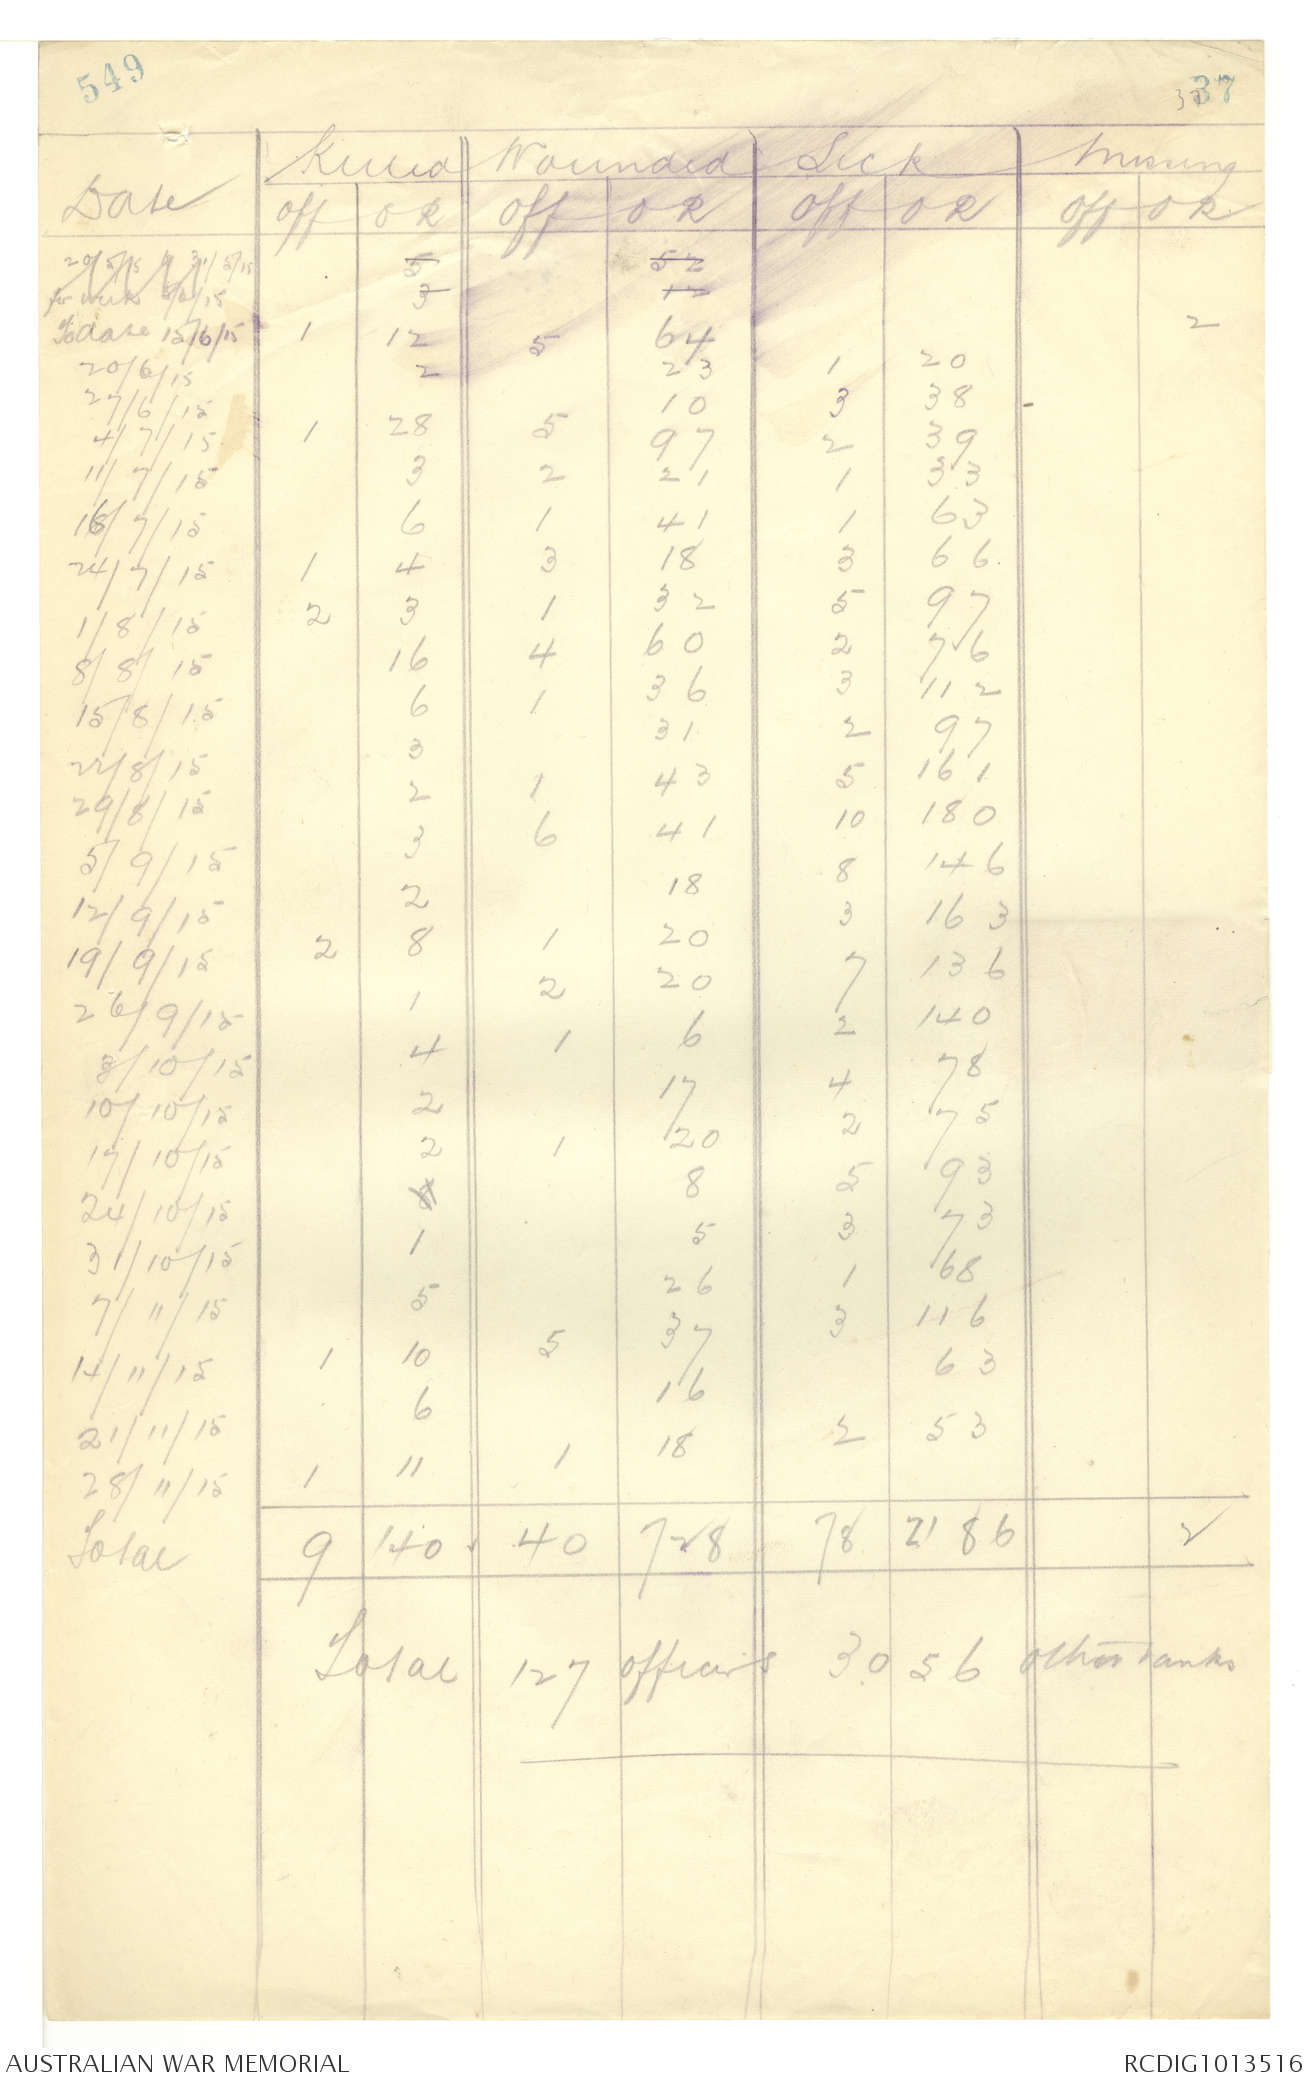 549
3737
Killed Wounded Sick Missing
Date Off OR Off OR Off OR Off OR
20/5/15 31/5/15 5 52
for week 6/15 3 12
To date 15/6/15 1 12 5 64 2
20/6/15 2 23 1 20
27/6/15 10 3 38
4/7/15 1 28 5 97 2 39
11/7/15 3 2 21 1 33
18/7/15 6 1 41 1 63
24/7/15 1 4 3 18 3 66
1/8/15 2 3 1 32 5 97
8/8/15 16 4 60 2 76
15/8/15 6 1 36 3 112
22/8/15 3 31 2 97
29/8/15 2 1 43 5 161
5/9/15 3 6 41 10 180
12/9/15 2 18 8 146
19/9/15 2 8 1 20 3 163
26/9/15 1 2 20 7 136
3/10/15 4 1 6 2 140
10/10/15 2 17 4 78
17/10/15 2 1 20 2 75
24/10/15 8 5 93
31/10/15 1 5 3 73
7/11/15 5 26 1 68
14/11/15 1 10 5 37 3 116
21/11/15 6 16 63
28/11/15 1 11 1 18 2 53
Total 9 140 40 728 78 2186 2
Total 127 officers 3056 other ranks
AUSTRALIAN WAR MEMORIAL RCDIG1013516